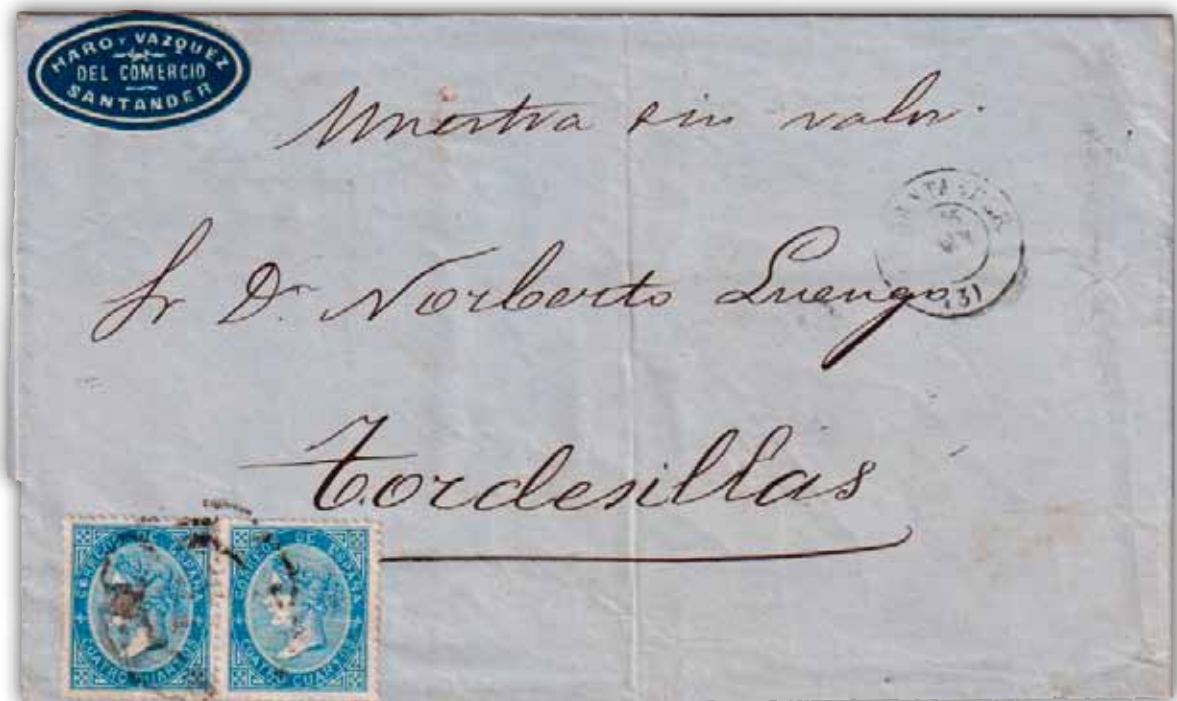 HARO Y VAZQUEZ
DEL COMERCIO
SANTANDER
Muestra sin valor.
SANTANDER
(31)
Sr Dn Norberto Luengo
Tordesillas
CORREOS DE ESPAÑA
CUATRO CUARTOS
CORREOS DE ESPAÑA
CUATRO CUARTOS